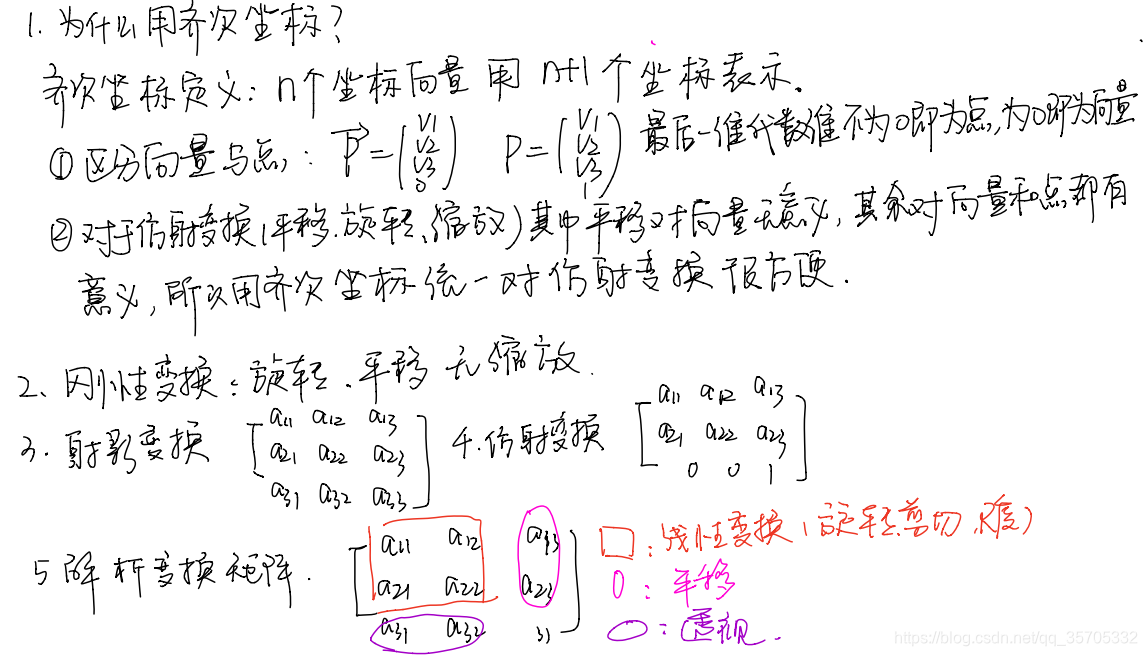 1. 为什么用齐次坐标?
齐次坐标定义: n个坐标向量用 n+1个坐标表示.
① 区分向量与点: P=(V1 V2 V3 0) P=(V1 V2 V3 1) 最后一维代数谁不为0即为点,为0即为向量
② 对于仿射变换(平移.旋转、缩放)其中平移对向量无意义,其余对向量和点都有
意义,所以用齐次坐标统一对仿射变换很方便.
2、刚性变换: 旋转、平移 无缩放.
3. 射影变换 [a11 a12 a13
a21 a22 a23
a31 a32 a33]
4. 仿射变换 [a11 a12 a13
a21 a22 a23
0 0 1]
5 解析变换矩阵.
a11 a12
a21 a22 a23
a31 a32
: 线性变换(旋转、剪切、尺度)
: 平移
: 透视.
https://blog.csdn.net/qq_35705332